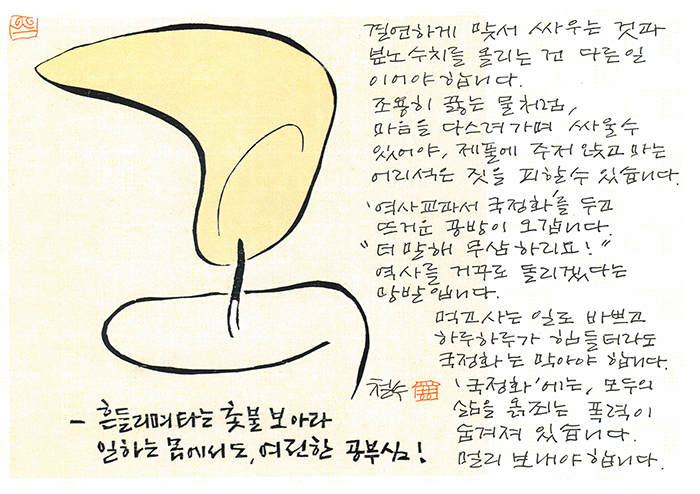 결연하게 맞서 싸우는 것과
분노 수치를 올리는 건 다른 일
이어야 합니다.
조용히 끓는 물처럼,
마음을 다스려가며 싸울 수
있어야, 제풀에 주저 앉고 마는
어리석은 짓을 피할 수 있습니다.
'역사교과서 국정화'를 두고
뜨거운 공방이 오갑니다.
"더 말해 무삼하리요!"
역사를 거꾸로 돌리겠다는
망발입니다.
먹고 사는 일로 바쁘고
하루하루가 힘들더라도
국정화는 막아야 합니다.
'국정화'에는, 모두의
삶을 옭죄는 폭력이
숨겨져 있습니다.
멀리 보내야 합니다.
철수
- 흔들리며 타는 촛불 보아라
일하는 몸에서도, 여전한 공부심!